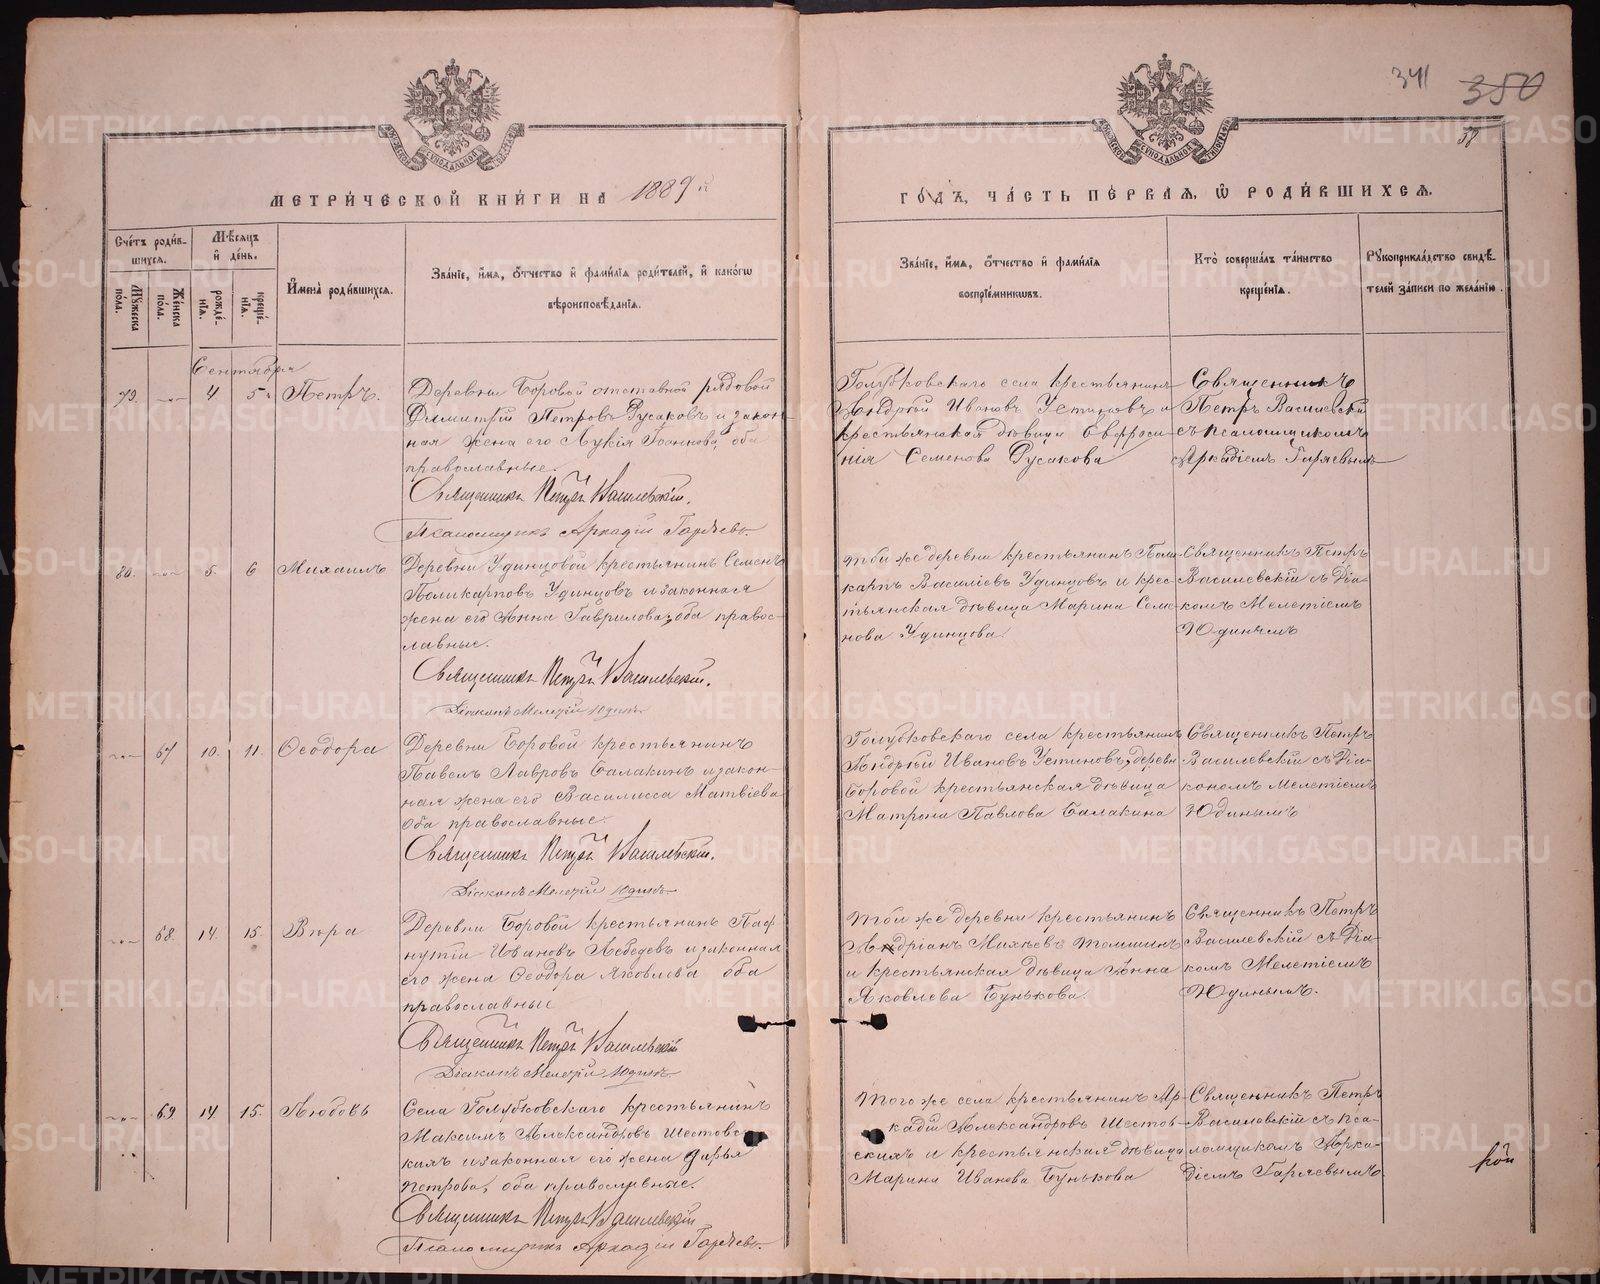 341 350
58
МЕТРИ́ЧЕСКОЙ КНИ́ГИ НА 1889 й
ГО́ДЪ, ЧА́СТЬ ПЕ́РВАЯ, Ѡ РОДИ́ВШИХСЯ.
Сче́тъ роди́в-
шихся.
Мꙋ́жеска по́ла.
Же́нска по́ла.
Мѣ́сяцъ
и́ де́нь.
рожде́-
нїя.
креще́-
нїя.
И҆мена̀ роди́вшихся.
Зва́нїе, и҆́мя, ѻ҆́тчество и҆ фами́лїя роди́телей, и҆ како́гѡ
вѣроисповѣ́данїя.
Зва́нїе, и҆́мя, ѻ҆́тчество и҆ фами́лїя
воспрїе́мникѡвъ.
Кто̀ соверша́лъ та́инство
креще́нїя.
Рꙋкоприкла́дство свидѣ́-
телей за́писи по жела́нїю.
Сентября
79. 4 5 Петръ.
Деревни Боровой отставной рядовой
Димитрій Петровъ Русаковъ и закон-
ная жена его Лукія Іоаннова, оба
православные.
Священникъ Петръ Василевскій.
Псаломщикъ Аркадій Гаряевъ.
Голубковскаго села крестьянинъ
Андрей Ивановъ Устиновъ и
крестьянская дѣвица Евфроси-
нія Семенова Русакова
Священникъ
Петръ Василевскій
съ псаломщикомъ
Аркадіемъ Гаряевымъ
80. 5. 6 Михаилъ
Деревни Удинцовой крестьянинъ Семенъ
Поликарповъ Удинцовъ и законная
жена его Анна Гаврилова, оба правос-
лавные.
Священникъ Петръ Василевскій.
Діаконъ Мелетій Юдинъ
Той же деревни крестьянинъ Поли-
карпъ Василіевъ Удинцовъ и крес-
тьянская дѣвица Марина Семе-
нова Удинцова.
Священникъ Петръ
Василевскій съ Діа-
комъ Мелетіемъ
Юдинымъ
67 10. 11. Ѳеодора
Деревни Боровой крестьянинъ
Павелъ Лавровъ Балакинъ и закон-
ная жена его Василисса Матвіева
оба православные.
Священникъ Петръ Василевскій.
Діаконъ Мелетій Юдинъ
Голубковскаго села крестьянинъ
Андрей Ивановъ Устиновъ, деревни
Боровой крестьянская дѣвица
Матрона Павлова Балакина
Священникъ Петръ
Василевскій съ Діа-
кономъ Мелетіемъ
Юдинымъ
68. 14. 15. Вѣра
Деревни Боровой крестьянинъ Паф-
нутій Ивановъ Лебедевъ и законная
его жена Ѳеодора Яковлева оба
православные
Священникъ Петръ Василевскій
Діаконъ Мелетій Юдинъ
Той же деревни крестьянинъ
Андріанъ
и крестьянская дѣвица Анна
Яковлева Бунькова.
Священникъ Петръ
Василевскій съ Діа-
комъ Мелетіемъ
Юдинымъ.
69 14 15. Любовь
Села Голубковскаго крестьянинъ
Максимъ Александровъ Шестовс-
кихъ и законная его жена Дарья
Петрова, оба православные.
Священникъ Петръ Василевскій
Псаломщикъ Аркадій Гаряевъ.
Того же села крестьянинъ Ар-
кадій Александровъ Шестов-
скихъ и крестьянская дѣвица
Марина Иванова Бунькова
Священникъ Петръ
Василевскій съ пса-
ломщикомъ Арка-
діемъ Гаряевымъ
METRIKI.GASO-URAL.RU